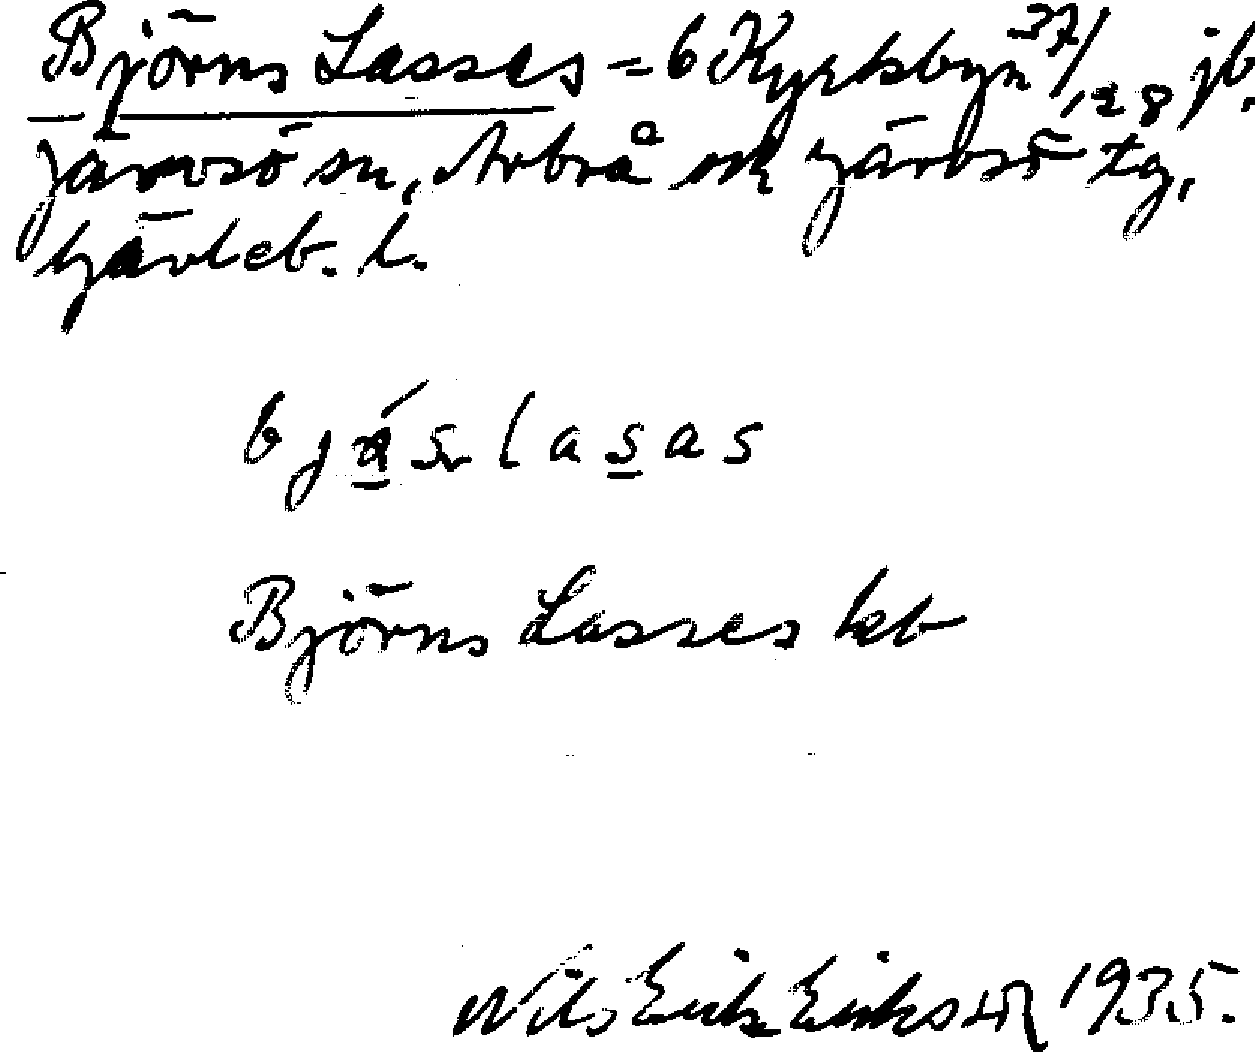 Björns Lasses = 6 Kyrkbyn 37/128 jb.
Järvsö sn, Arbrå och Järvsö tg,
Gävleb. l.
bjá̱s las̱as
Björns Lasses kb
Nils Erik Eriksson 1935.